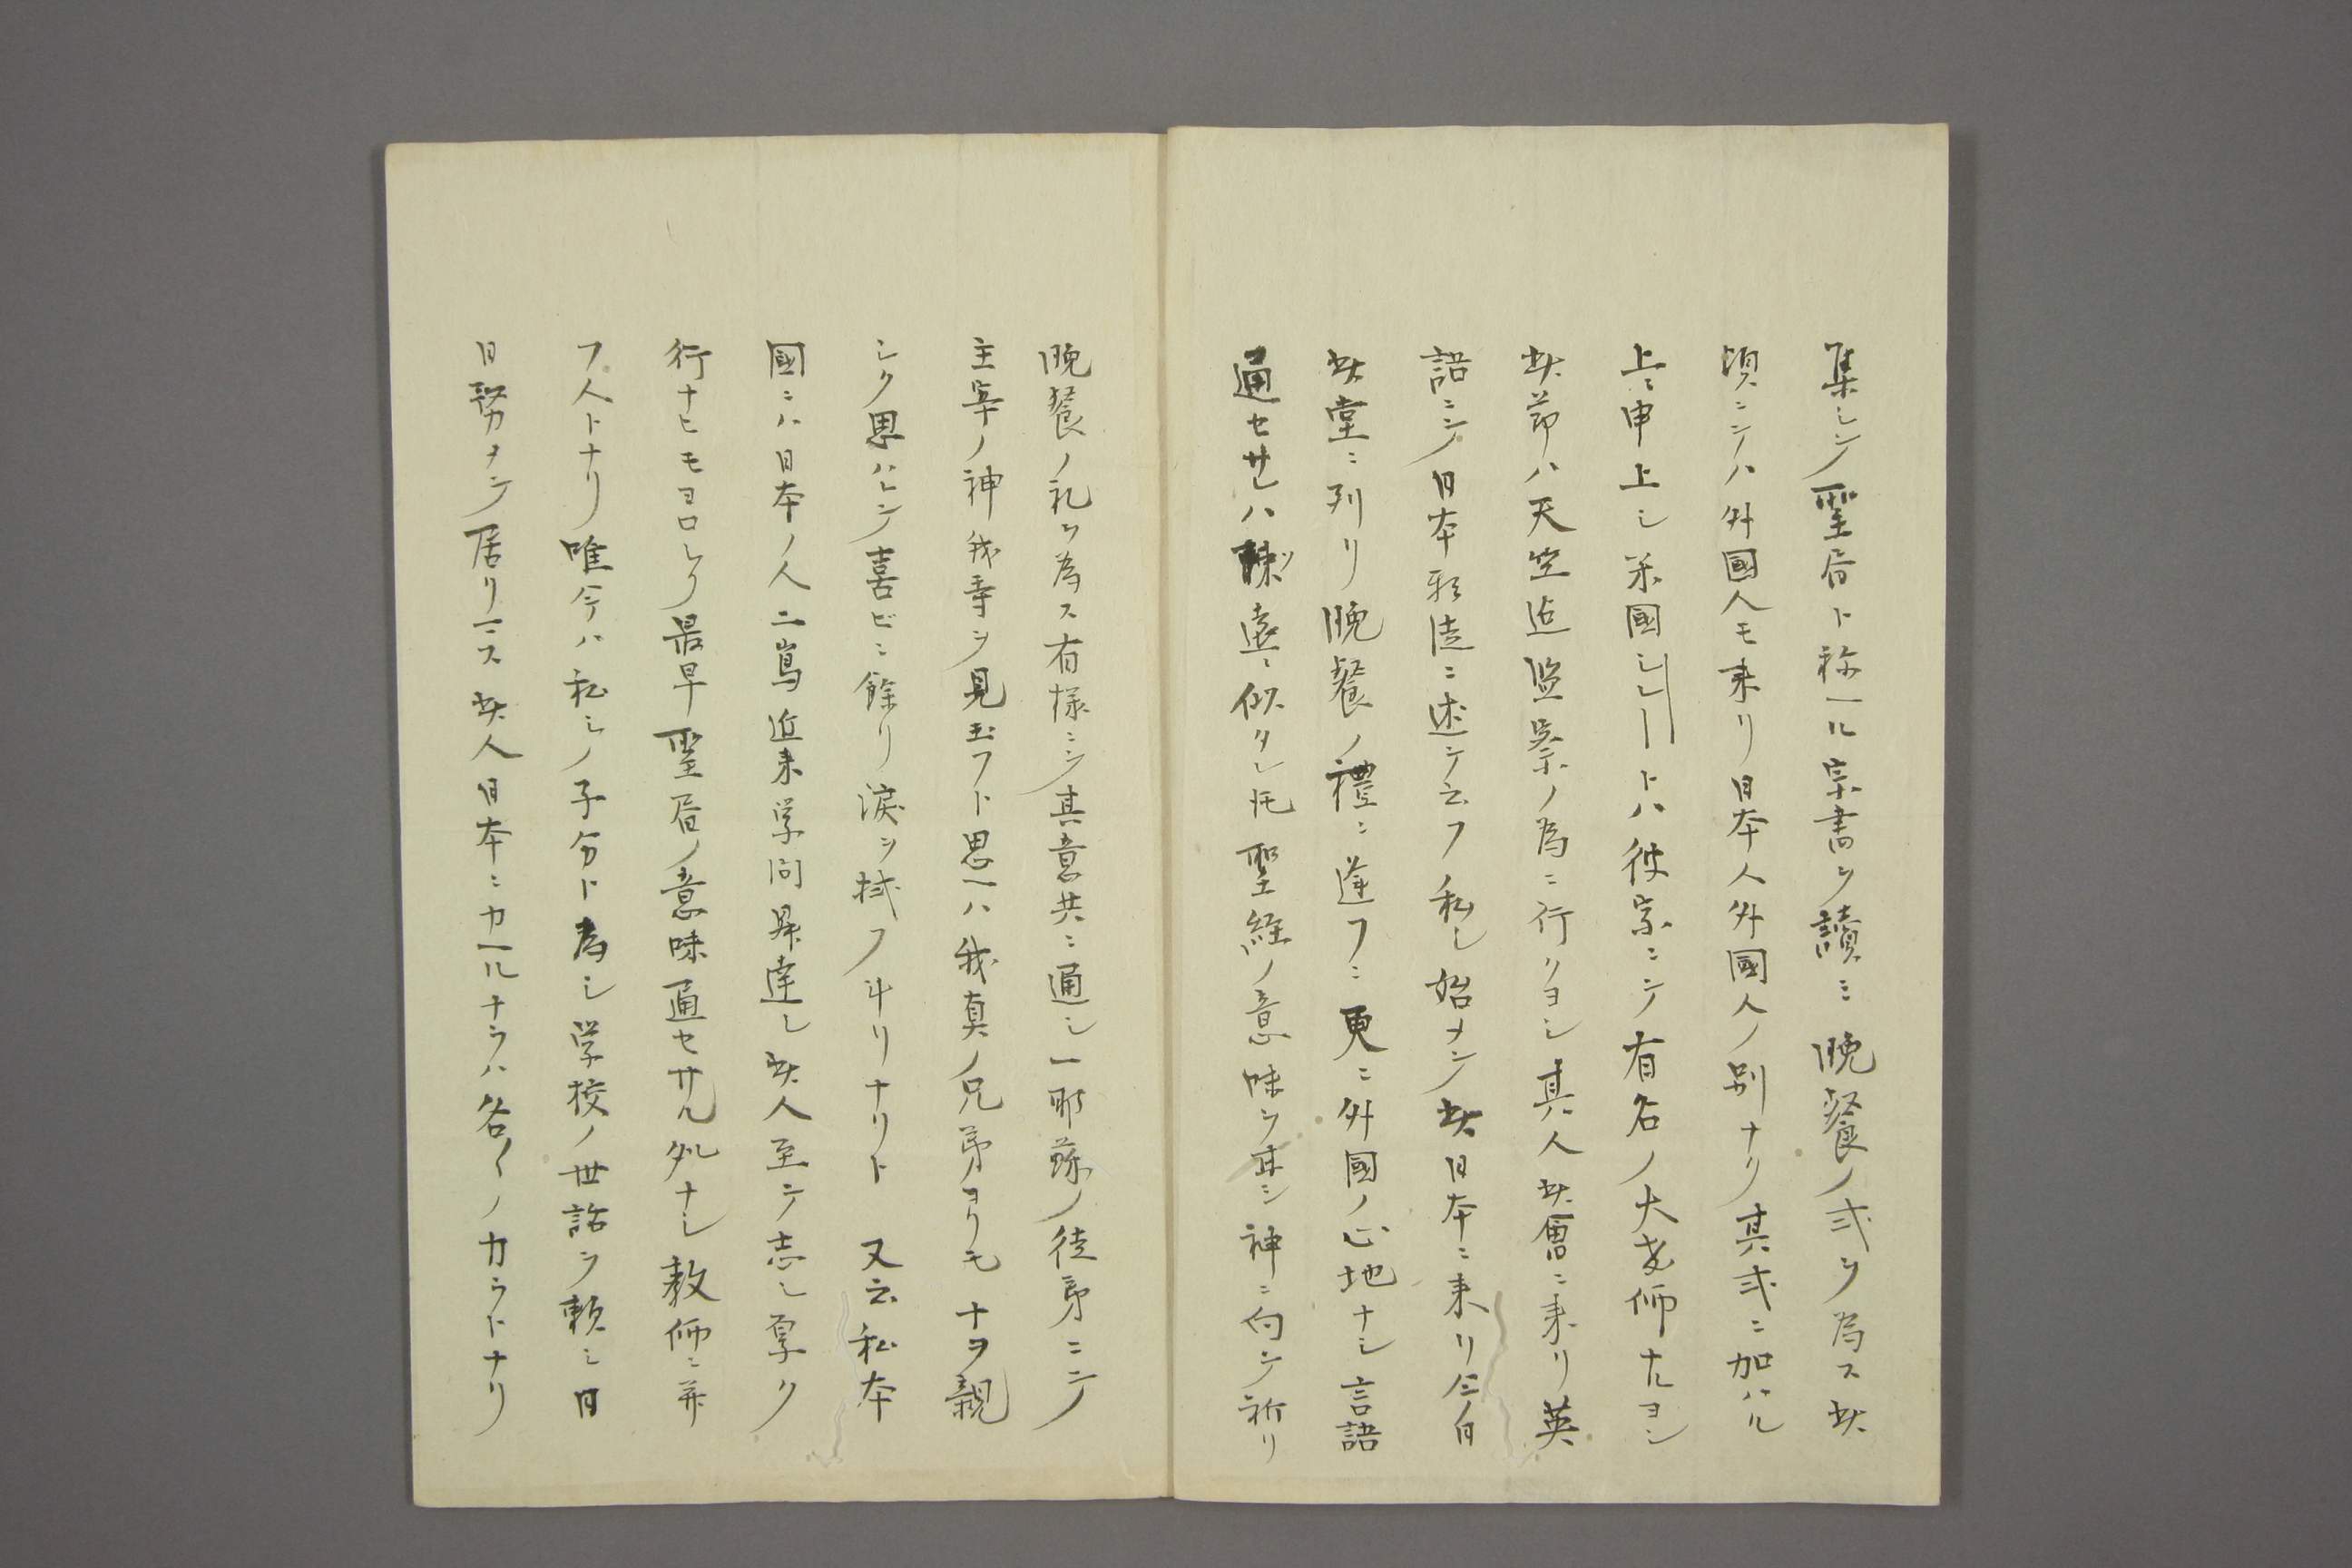 集シテ聖昏ト称ヘル宗書ヲ讀ミ晩餐ノ式ヲ為ス此
頃ニテハ外國人モ来リ日本人外國人ノ別ナリ其式ニ加ハル
上ニ申上シ米國シレートハ彼宗ニテ有名ノ大老師ナルヨシ
此節ハ天竺迄監察ノ為ニ行クヨシ其人此會ニ来リ英
語ニテ日本邪徒ニ述テ云フ私シ始メテ此日本ニ来リ今日
此堂ニ列リ晩餐ノ禮ニ逢フニ更ニ外國ノ心地ナシ言語
通セサレハ疎遠ニ似タレ𪜈聖経ノ意味ヲ以テ神ニ向テ祈リ
晩餐ノ礼ヲ為ス有様ニテ其意共ニ通シ一耶蘇ノ徒弟ニテ
主宰ノ神我幸ヲ見玉フト思ヘハ我真ノ兄弟ヨリモナヲ親
シク思ハレテ喜ビニ餘リ涙ヲ拭フ斗リナリト 又云私本
國ニハ日本ノ人二嶌近来学問昇達シ此人至テ志シ厚ク
行ナヒモヨロシク最早聖昏ノ意味通セサル処ナシ教師ニ並
フ人トナリ唯今ハ私シノ子分ト為シ学校ノ世話ヲ頼ミ日
日努メテ居リマス此人日本ニカヘルナラハ各〱ノ力ラトナリ